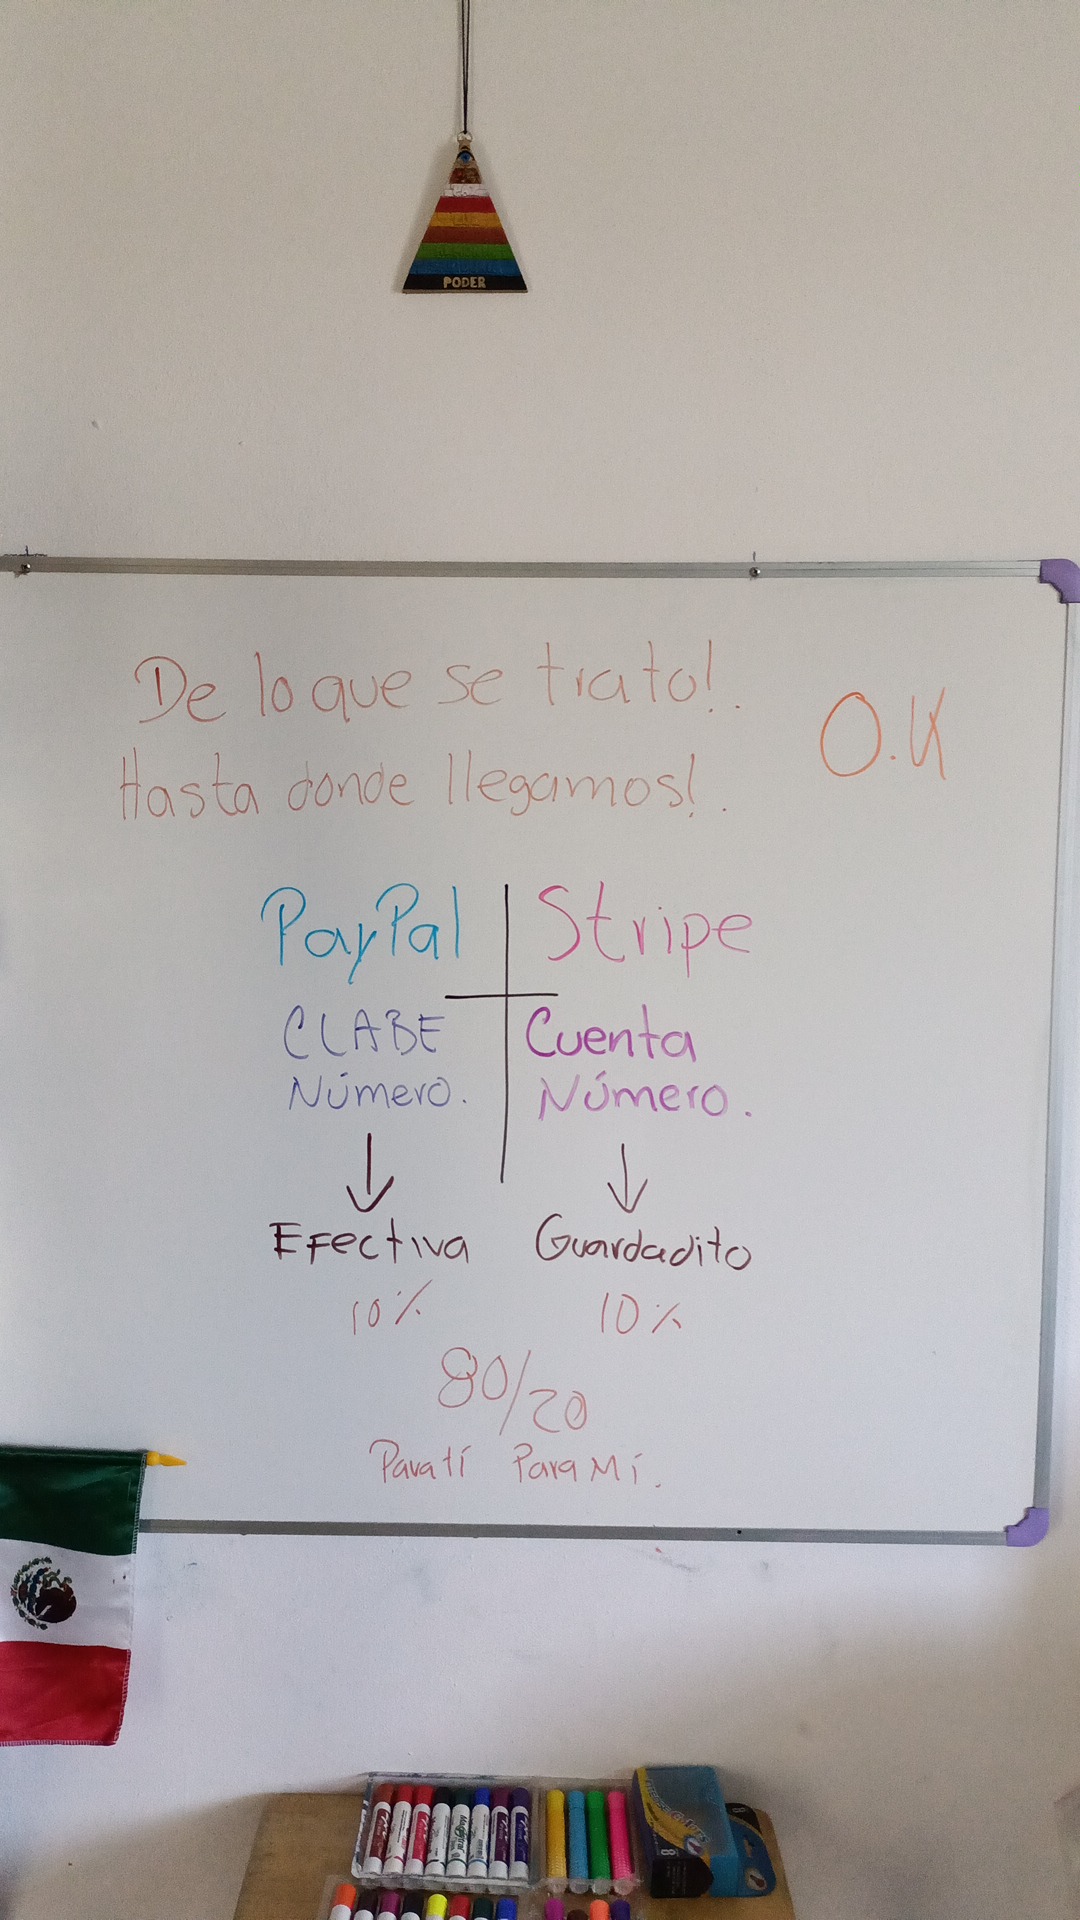 PODER
De lo que se trato!.
Hasta donde llegamos!.
O.K
PayPal Stripe
CLABE Cuenta
Número. Número.
Efectiva Guardadito
10% 10%
80/20
Para tí Para Mí.